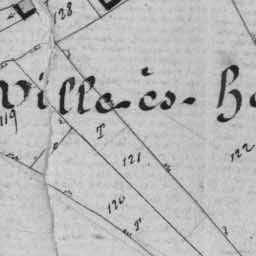 128
Ville-ès-
119
T
121
122
120
T